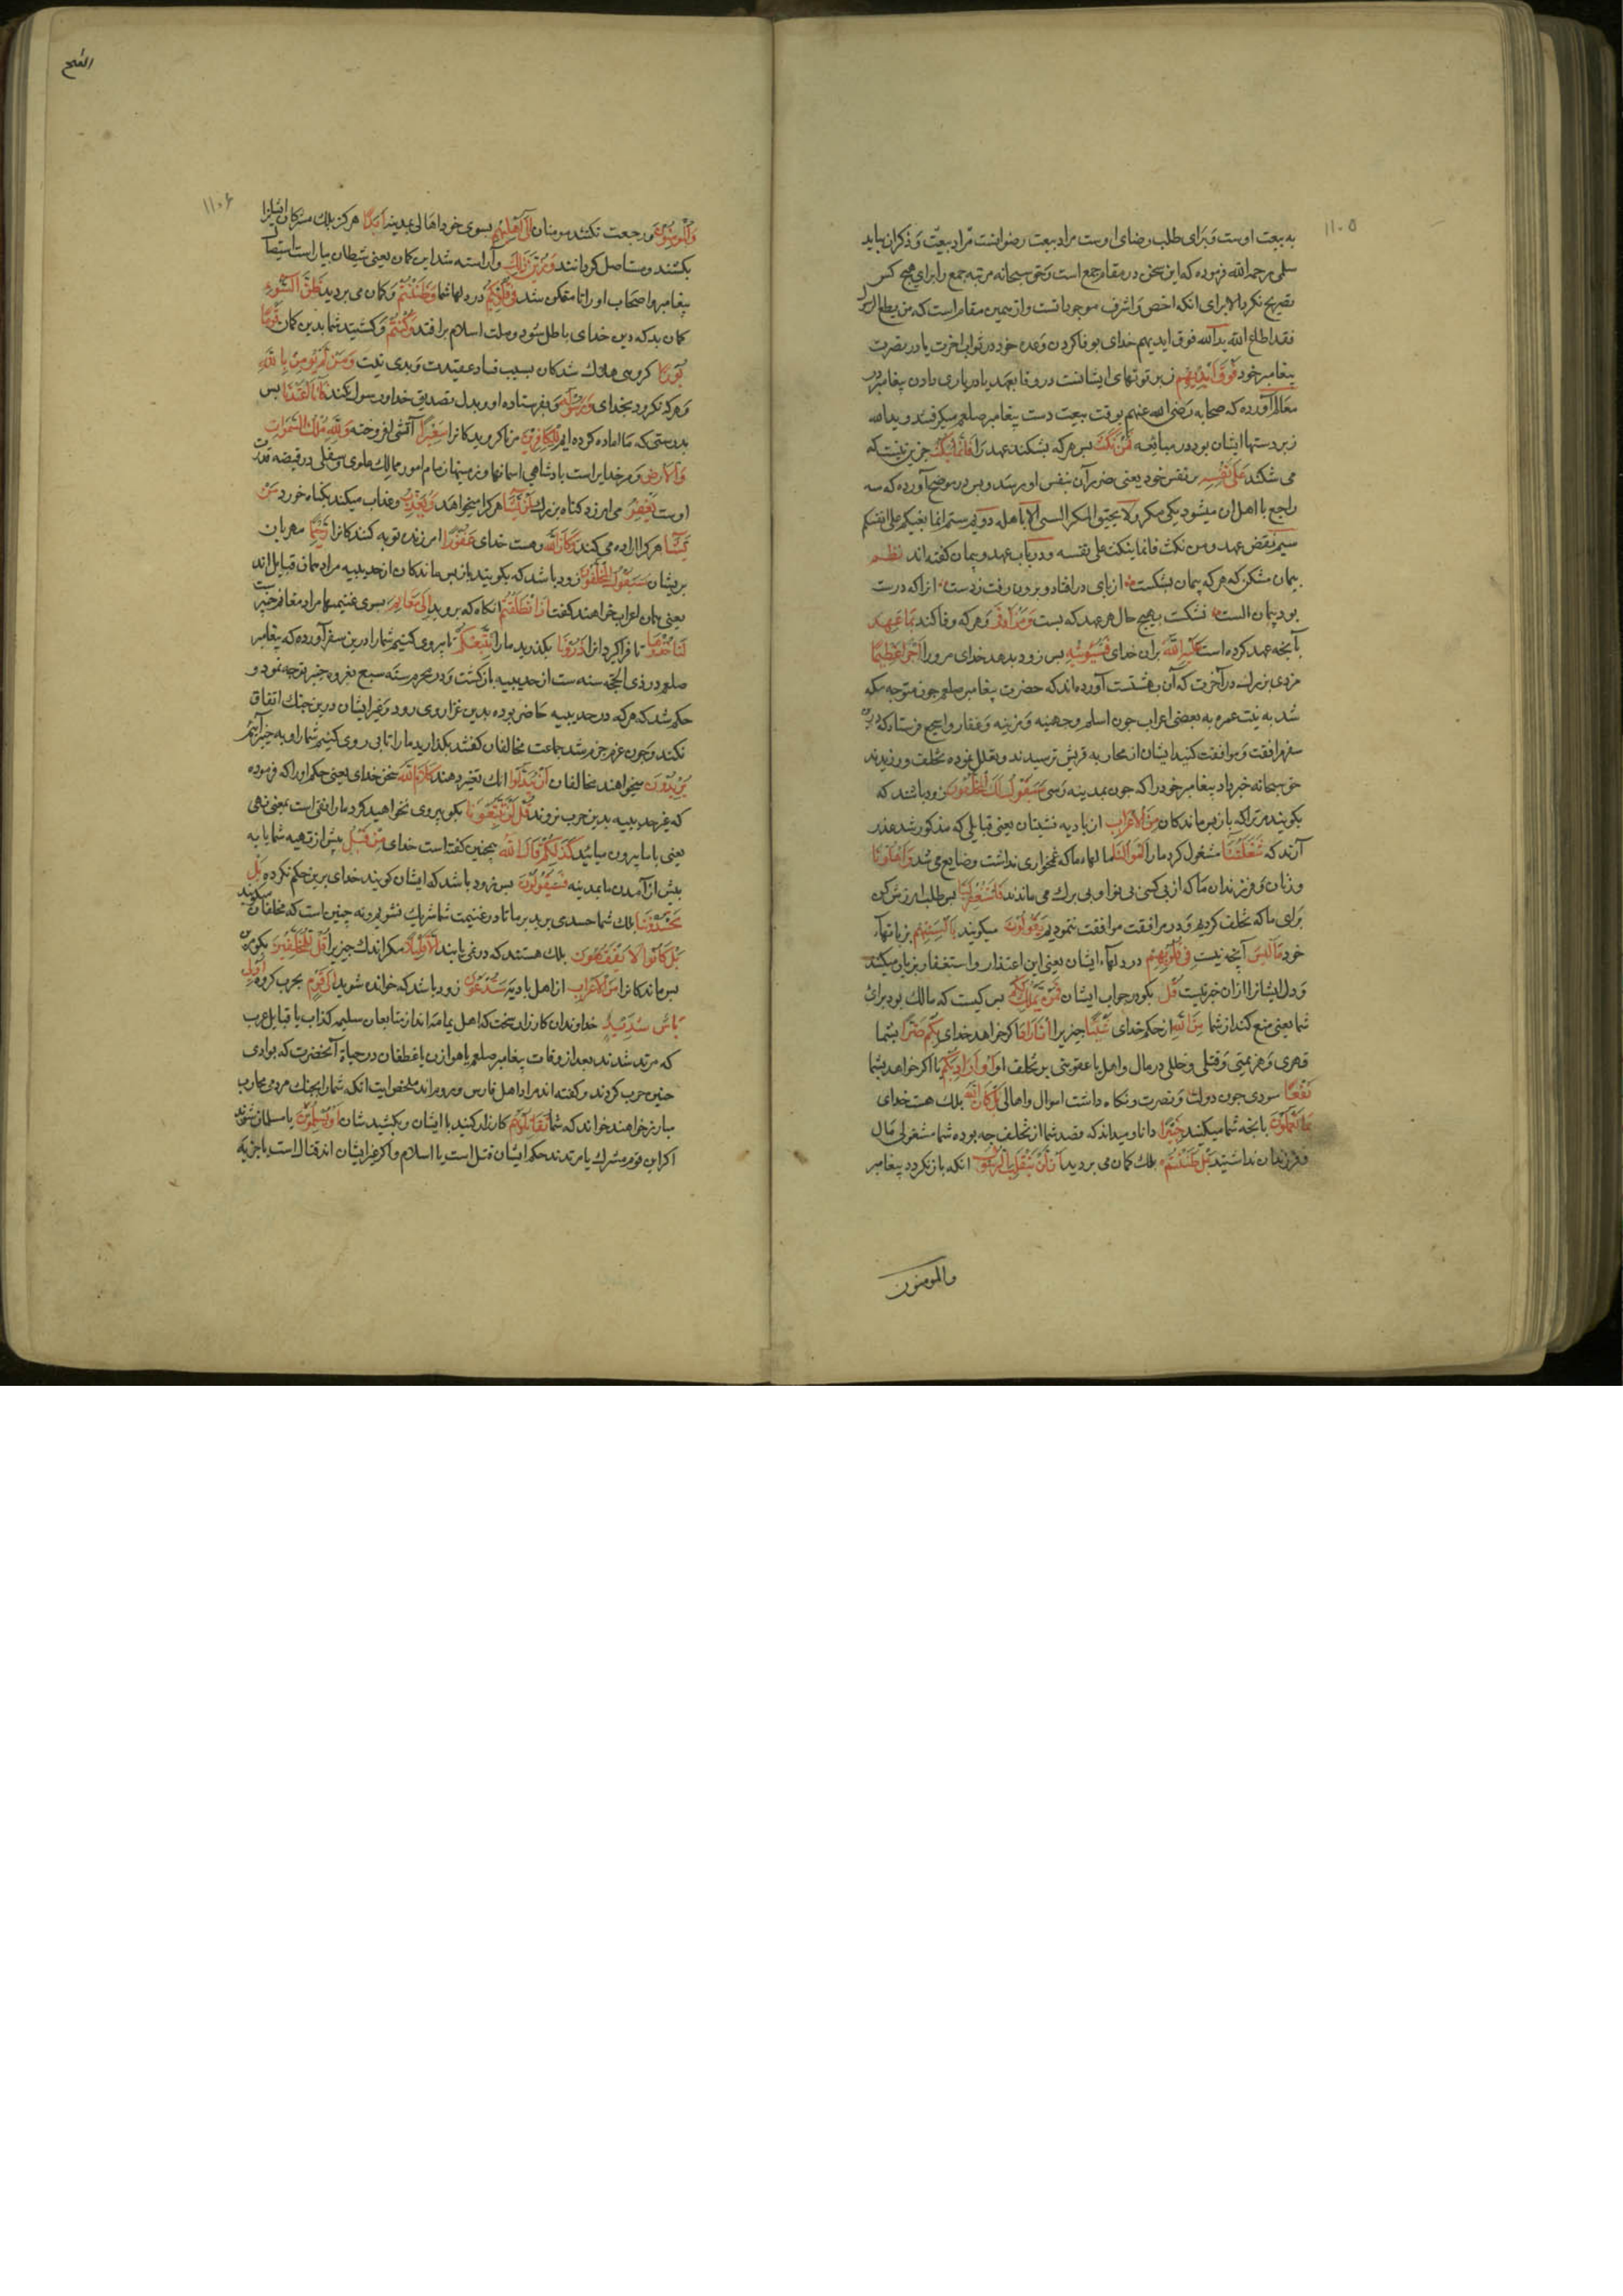 ١١٠٥
به بیعت اوست و برای طلب رضای اوست مراد بیعت رضوانست مراد بیعت و ذکر ان بیاید
سلمی رحمه الله فرموده که این سخن در مقام جمع است و حق سبحانه مرتبه جمع را برای هیچ کس
تصریح نکرد الا برای انکه اخص و اشرف موجوداتست و از همین مقام است که من یطع الرسول
فقد اطاع الله ید الله فوق ایدیهم خدای بوفا کردن وعده خود در ثواب اخرت یا در نصرت
پیغامبر خود فوق ایدیهم زبر توتهای ایشانست در وفا بعهد یا در یاری دادن پیغامبر در
معالم آورده که صحابه رضی الله عنهم بوقت بیعت دست پیغامبر صلعم میکرفتند و ید الله
زبر دستها ایشان بود در مبایعه فمن نکث بس هر که بشکند عهد را فانما ینکث جز این نیست که
می شکند علی نفسه بر نفس خود یعنی ضرر آن بنفس او رسد و بس در موضح آورده که سه
راجع با اهل ان میشود یکی مکر ولا یحیق المکر السیی الا باهله دویم ستم انما بغیکم علی انفسکم
سیم نقض عهد و من نکث فانما ینکث علی نفسه و در باب عهد و پیمان کفته اند نظم
پیمان مشکن که هر که پیمان بشکست از پای در افتاد و برون رفت ز دست انرا که درست
بود پیمان الست نشکست بهیچ حال هر عهد که بست و من اوفی و هر که وفا کند بما عهد
بآنچه عهد کرده است علیه الله بران خدای فسیوتیه بس زود بدهد خدای مرو را اجرا عظیما
مزدی بزرک در آخرت که آن بهشتست آورده اند که حضرت پیغامبر صلعم چون متوجه مکه
شد به نیت عمره به بعضی اعراب چون اسلم و جهینه و مزینه و غفار و اشجع فرستاد که درین
سفر مرافقت و موافقت کنید ایشان از محاربه قریش ترسیدند و تعلل نموده تخلف ورزیدند
حق سبحانه خبر داد پیغامبر خود را که چون بمدینه رسی سیقول لک المخلفون زود باشند که
بکویند مر ترا که باز پس ماندکان من الاعراب از بادیه نشینان یعنی قبایلی که مذکور شد عذر
آرند که شغلتنا مشغول کرد ما را اموالنا مالهاء ما که غمخواری نداشت و ضایع می شد و اهلونا
و زنان و فرزندان ما که از بی کسی بی نوا و بی برک می ماندند فاستغفر لنا بس طلب امرزش کن
برای ما که تخلف کردیم و در مرافقت موافقت ننمودیم یقولون میکویند بالسنتهم بزبانهاء
خود ما لیس آنچه نیست فی قلوبهم در دلهاء ایشان یعنی این اعتذار و استغفار بزبان میکنند
و دل ایشانرا ازان خبر نیست قل بکو در جواب ایشان فمن یملک لکم بس کیست که مالک بود برای
شما یعنی منع کند از شما من الله از حکم خدای شیئا چیزیرا ان اراد اکر خواهد خدای بکم ضرا بشما
قهری و هزیمتی و قتلی و خللی در مال و اهل یا عقوبتی بر تخلف او او اراد بکم یا اکر خواهد بشما
نفعا سودی چون دولت و نصرت و نکاه داشت اموال و اهالی بل کان الله بلک هست خدای
بما تعملون بانچه شما میکنید خبیرا دانا و میداند که قصد شما از تخلف چه بوده شما مشغولی مال
و فرزندان نداشتید بل ظننتم بلک کمان می بردید ان لن ینقلب الرسول انکه باز نکردد پیغامبر
والمومنون
الفتح
١١٠۶
والمومنون و رجعت نکنند مومنان الی اهلیهم بسوی خود اهالی بمدینه ابدا هرکز بلک مشرکان ایشانرا
بکشند و مستاصل کردانند و زین ذلک و آراسته شد این کمان یعنی شیطان بیاراست استیصال
پیغامبر و اصحاب او را تا متمکن شد فی قلوبکم در دلها شما و ظننتم و کمان می بردید ظن السوء
کمان بد که دین خدای باطل شود و ملت اسلام بر افتد و کنتم و کشتید شما بدین کمان قوما
بورا کروهی هلاک شدکان بسبب فساد عقیدت و بدی نیت و من لم یومن بالله
و هر که نکرود بخدای و رسوله و بفرستاده او و بدل تصدیق خدا و رسول نکند فانا اعتدنا بس
بدرستی که ما اماده کرده ایم للکافرین مر ناکرویدکانرا سعیرا آتشی افروخته ولله ملک السموات
والارض و مر خدایراست پادشاهی اسمانها و زمینها زمام امور ممالک علوی و سفلی در قبضه قدرت
اوست یغفر می امرزد کناه بزرک لمن یشا هر کرا میخواهد و یعذب و عذاب میکند بکناه خورد من
یشا هر کرا اراده می کند و کان الله و هست خدای غفورا امرزنده توبه کنندکانرا رحیما مهربان
بریشان سیقول المخلفون زود باشد که بکویند باز پس ماندکان از حدیبیه مراد همان قبایل اند
یعنی همان اعراب خواهند کفت اذا انطلقتم انکاه که بروید الی مغانم بسوی غنیمتها مراد مغانم خیبر است
لتاخذوها تا فرا کیرد انرا ذرونا بکذارید ما را نتبعکم تا پیروی کنیم شما را درین سفر آورده که پیغامبر
صلعم در ذی الحجه سنه ست از حدیبیه باز کشت و در محرم سنه سبع بغزوه خیبر توجه نمود و
حکم شد که هر که در حدیبیه حاضر بوده بدین غزا روی رود و غیر ایشان درین جنک اتفاق
نکنند و چون عزم جزم شد جماعت مخالفان کفتند بکذارید ما را تا پی روی کنیم شما را و به خیبر آئیم
یریدون میخواهند مخالفان ان یبدلوا انک تغیر دهند کلام الله سخن خدای یعنی حکم او را که فرموده
که غیر حدیبیه بدین حرب نروند قل لن تتبعونا بکو پیروی نخواهید کرد ما را نفی است بمعنی نهی
یعنی با ما بیرون میایید کذلکم قال الله همچنین کفته است خدای من قبل پیش از تهیه شما یا به
پیش از آمدن ما بمدینه فسیقولون بس زود باشد که ایشان کویند خدای برین حکم نکرده بل
تحسدوننا بلک شما حسد می برید بر ما تا در غنیمت شما شریک نشویم و نه چنین است که مخالفان میکویند
بل کانوا لا یفقهون بلک هستند که در نمی یابند الا قلیلا مکر اندک چیزیرا قل للمخلفین بکو مر
بس ماندکانرا من الاعراب از اهل بادیه ستدعون زود باشد که خوانده شوید الی قوم بحرب کروهی اولی
باس شدید خداوندان کارزار سخت که اهل یمامه اند از متابعان مسیلمه کذاب یا قبایل عرب
که مرتد شدند بعد از وفات پیغامبر صلعم یا هوازن یا غطفان در حیاة آنحضرت که بوادی
حنین حرب کردند و کفته اند مراد اهل فارس و روم اند ملخص ایت انکه شما را بجنک مردمی محارب
مبارز خواهند خواند که شما تقاتلونهم کارزار کنید با ایشان و بکشید شان او یسلمون یا مسلمان شوند
اکر این قوم مشرک یا مرتدند حکم ایشان قتل است یا اسلام و اکر غیر ایشان اند قتال است یا جزیه